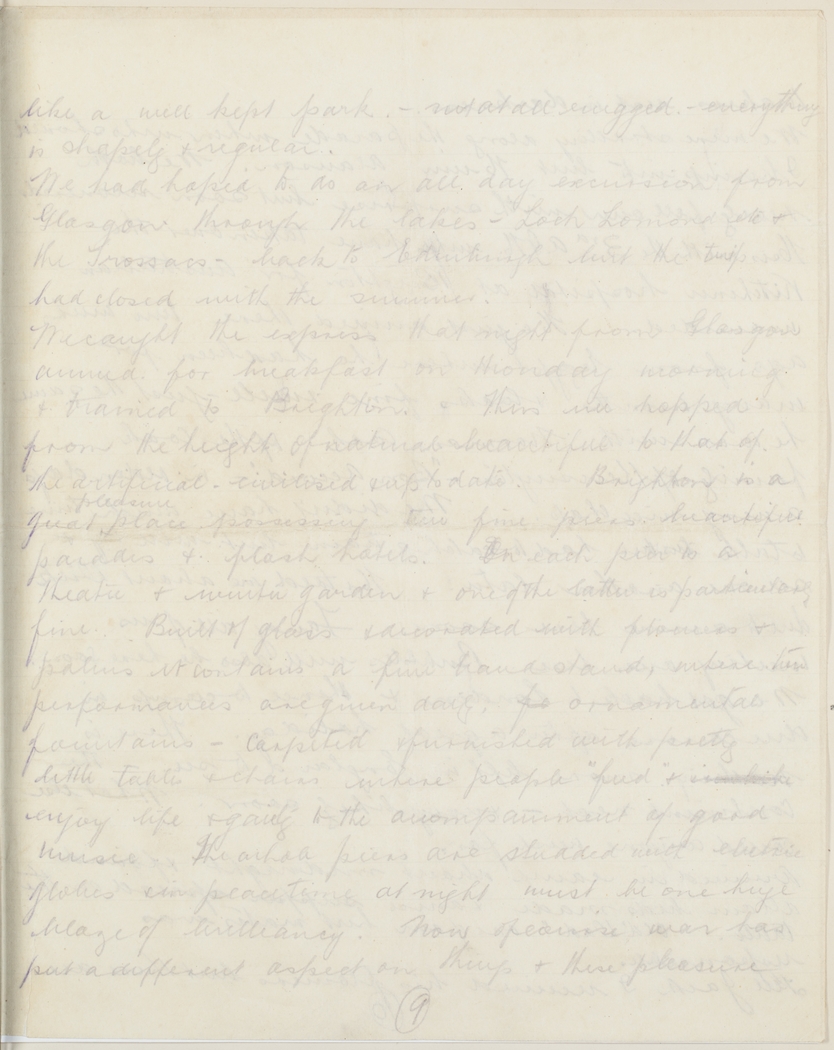 like a well kept park. - not at all rugged. - everything
is shapely & regular.
We had hoped to do an all day excursion from
Glasgow through the lakes - Loch Lomond etc &
the Trossacs - back to Edinburgh but the trip
had closed with the summer.
We caught the express that night from Glasgow
arrived for breakfast on Monday morning.
& trained to Brighton. & thus we hopped
from the height of natural beautiful to that of
the artificial - civilised & up to date. Brighton is a
pleasure
great place possessing two fine piers. beautiful
parades & flash hotels. On each pier is a
theatre & winter garden & one of the latter is particularly
fine. Built of glass & decorated with flowers &
palms it contains a fine band stand, where two
performances are given daily, fo ornamental
fountains - carpeted & furnished with pretty
little table & chairs where people "feed" &
enjoy life & gaity to the accompaniment of good
music. The whole piers are studded with electric
globes & in peace time at night must be one huge
blaze of brilliancy. Now of course war has
put a different aspect on things & these pleasure
9